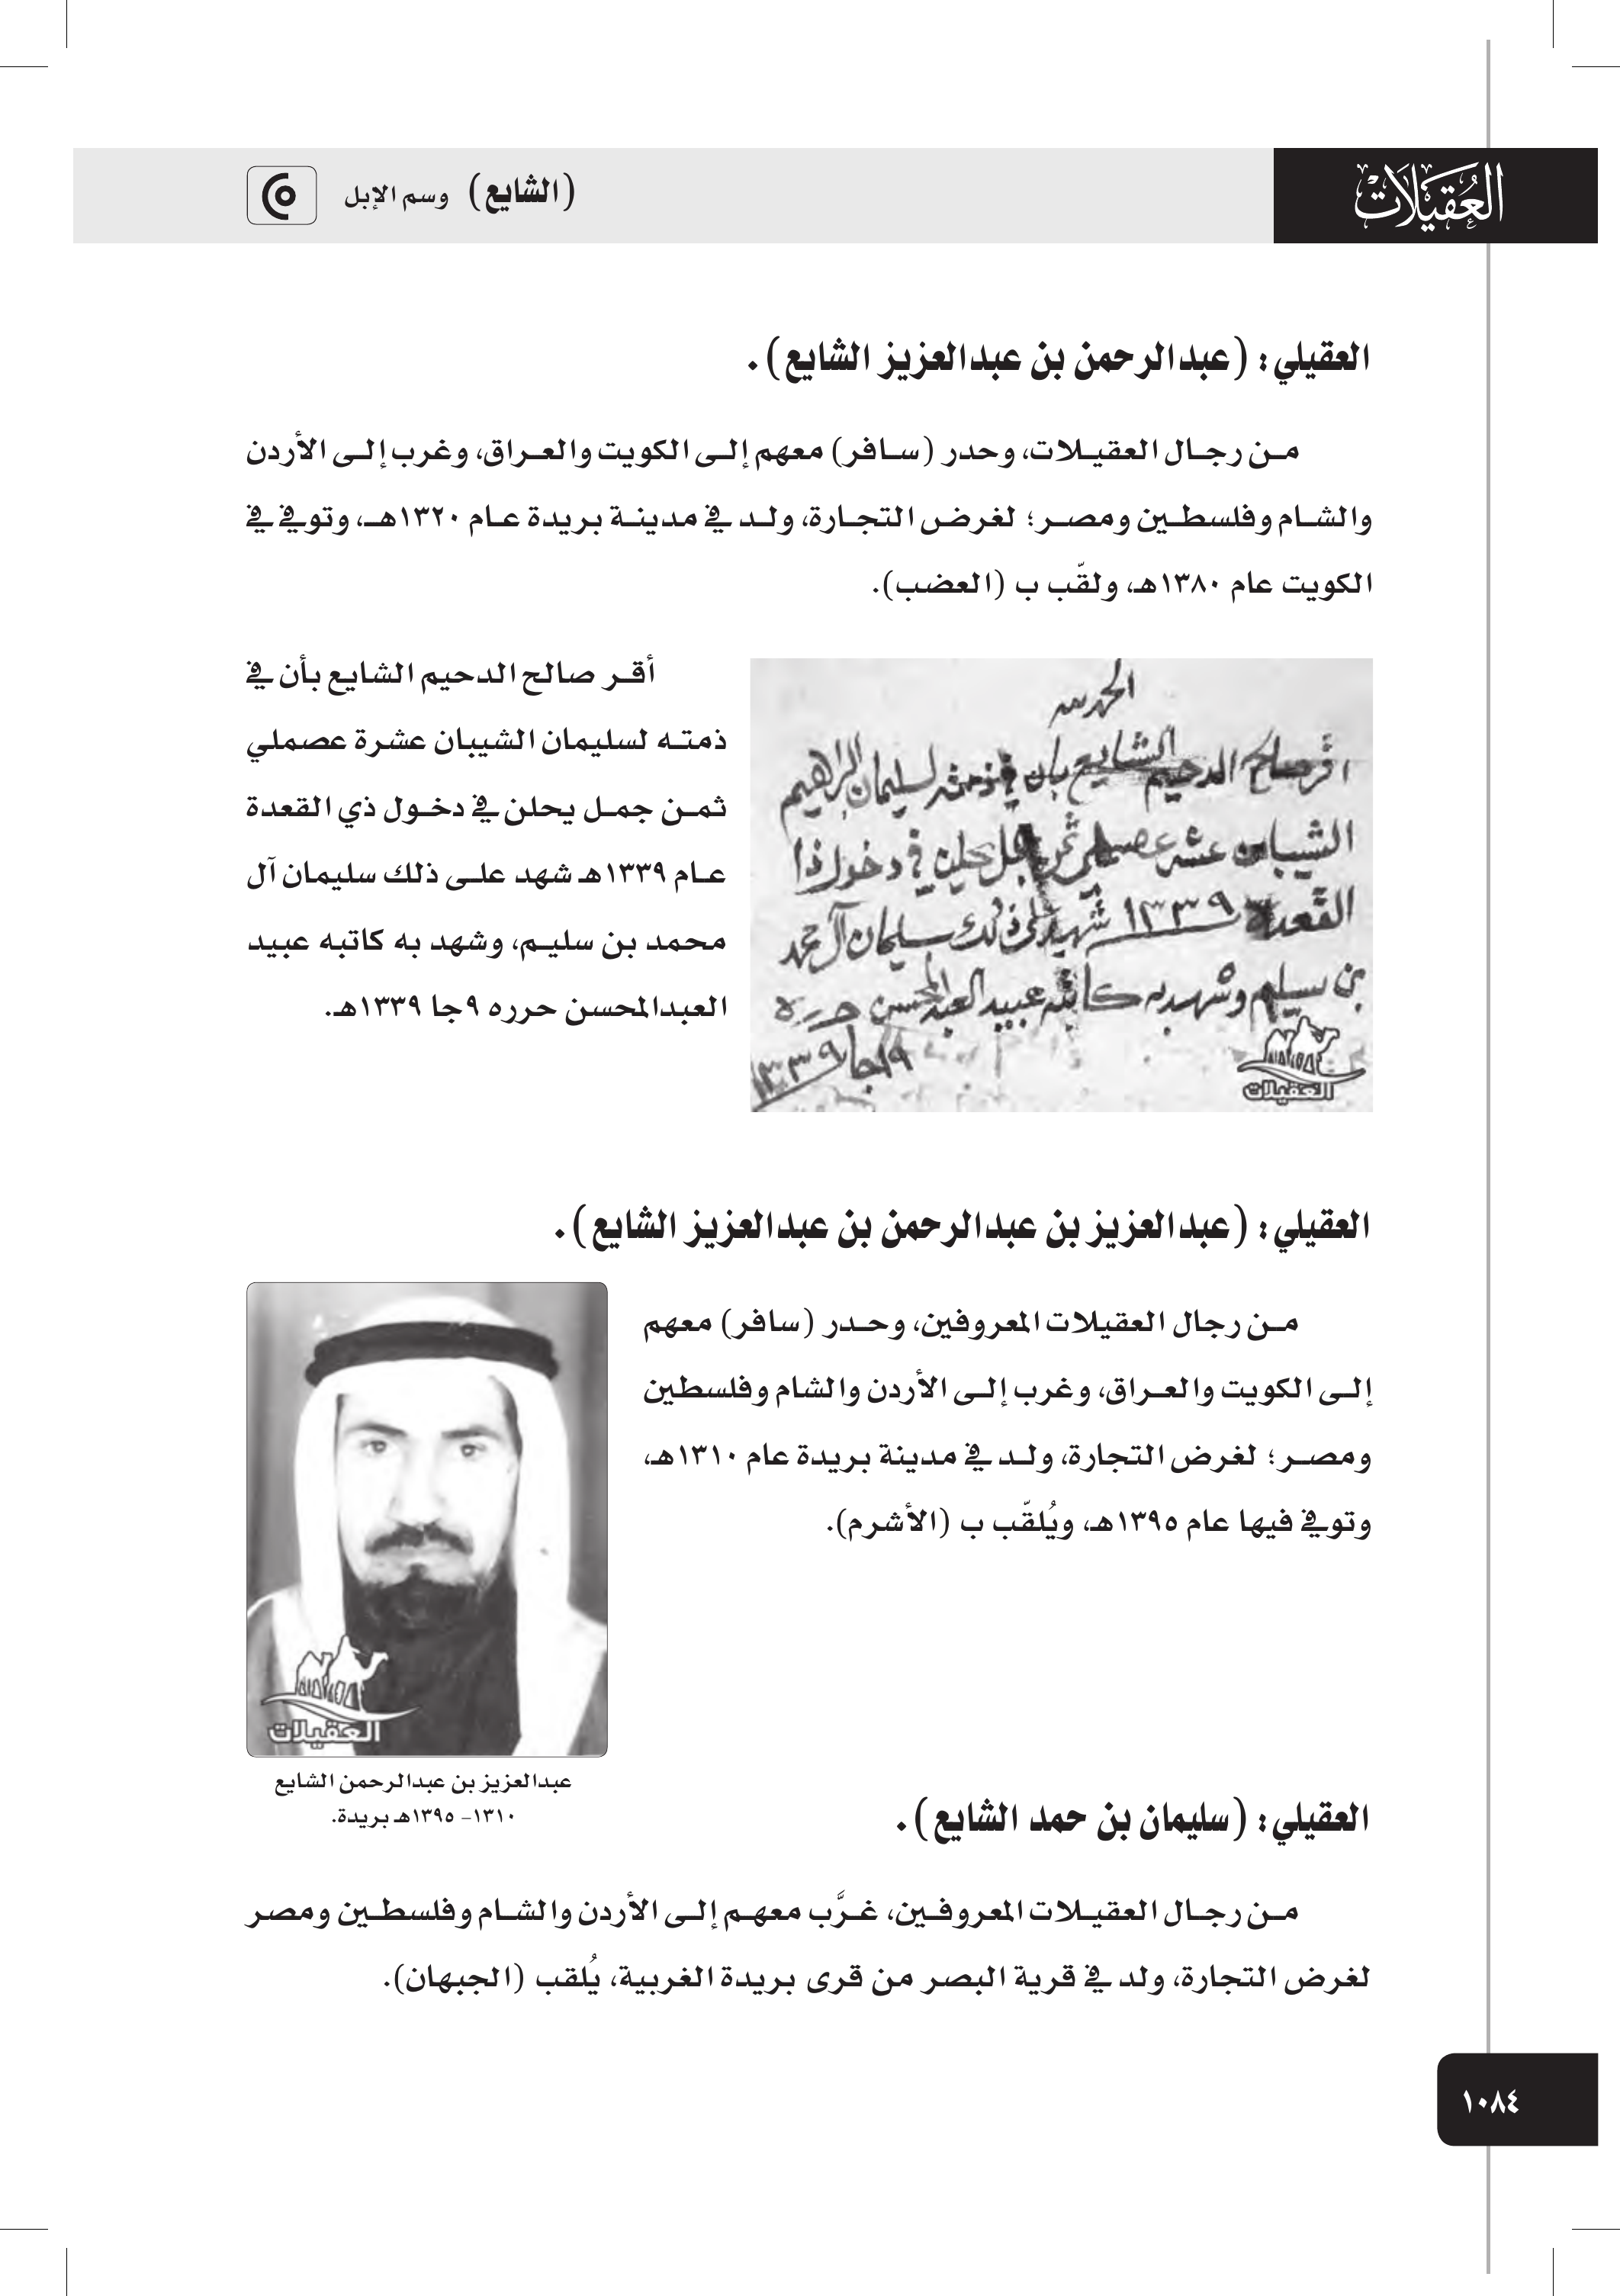 العُقيلات
(الشايع) وسم الإبل
العقيلي: (عبدالرحمن بن عبدالعزيز الشايع).
من رجال العقيلات، وحدر (سافر) معهم إلى الكويت والعراق، وغرب إلى الأردن
والشام وفلسطين ومصر؛ لغرض التجارة، ولد في مدينة بريدة عام ١٣٢٠هـ، وتوفي في
الكويت عام ١٣٨٠هـ، ولقّب ب (العضب).
الحمد لله
اقر صالح الدحيم الشايع بان في ذمته لسليمان البراهيم
الشيبان عشر عصملي ثمن جمل يحلن في دخول ذا
القعدة ١٣٣٩ شهد على ذلك سليمان آل محمد
بن سليم وشهد به كاتبه عبيد العبدالمحسن حرره
جا ١٣٣٩
العقيلات
أقر صالح الدحيم الشايع بأن في
ذمته لسليمان الشيبان عشرة عصملي
ثمن جمل يحلن في دخول ذي القعدة
عام ١٣٣٩هـ شهد على ذلك سليمان آل
محمد بن سليم، وشهد به كاتبه عبيد
العبدالمحسن حرره ٩جا ١٣٣٩هـ.
العقيلي: (عبدالعزيز بن عبدالرحمن بن عبدالعزيز الشايع).
من رجال العقيلات المعروفين، وحدر (سافر) معهم
إلى الكويت والعراق، وغرب إلى الأردن والشام وفلسطين
ومصر؛ لغرض التجارة، ولد في مدينة بريدة عام ١٣١٠هـ،
وتوفي فيها عام ١٣٩٥هـ، ويُلقّب ب (الأشرم).
العقيلات
عبدالعزيز بن عبدالرحمن الشايع
١٣١٠- ١٣٩٥هـ بريدة.
العقيلي: (سليمان بن حمد الشايع).
من رجال العقيلات المعروفين، غرَّب معهم إلى الأردن والشام وفلسطين ومصر
لغرض التجارة، ولد في قرية البصر من قرى بريدة الغربية، يُلقب (الجبهان).
١٠٨٤